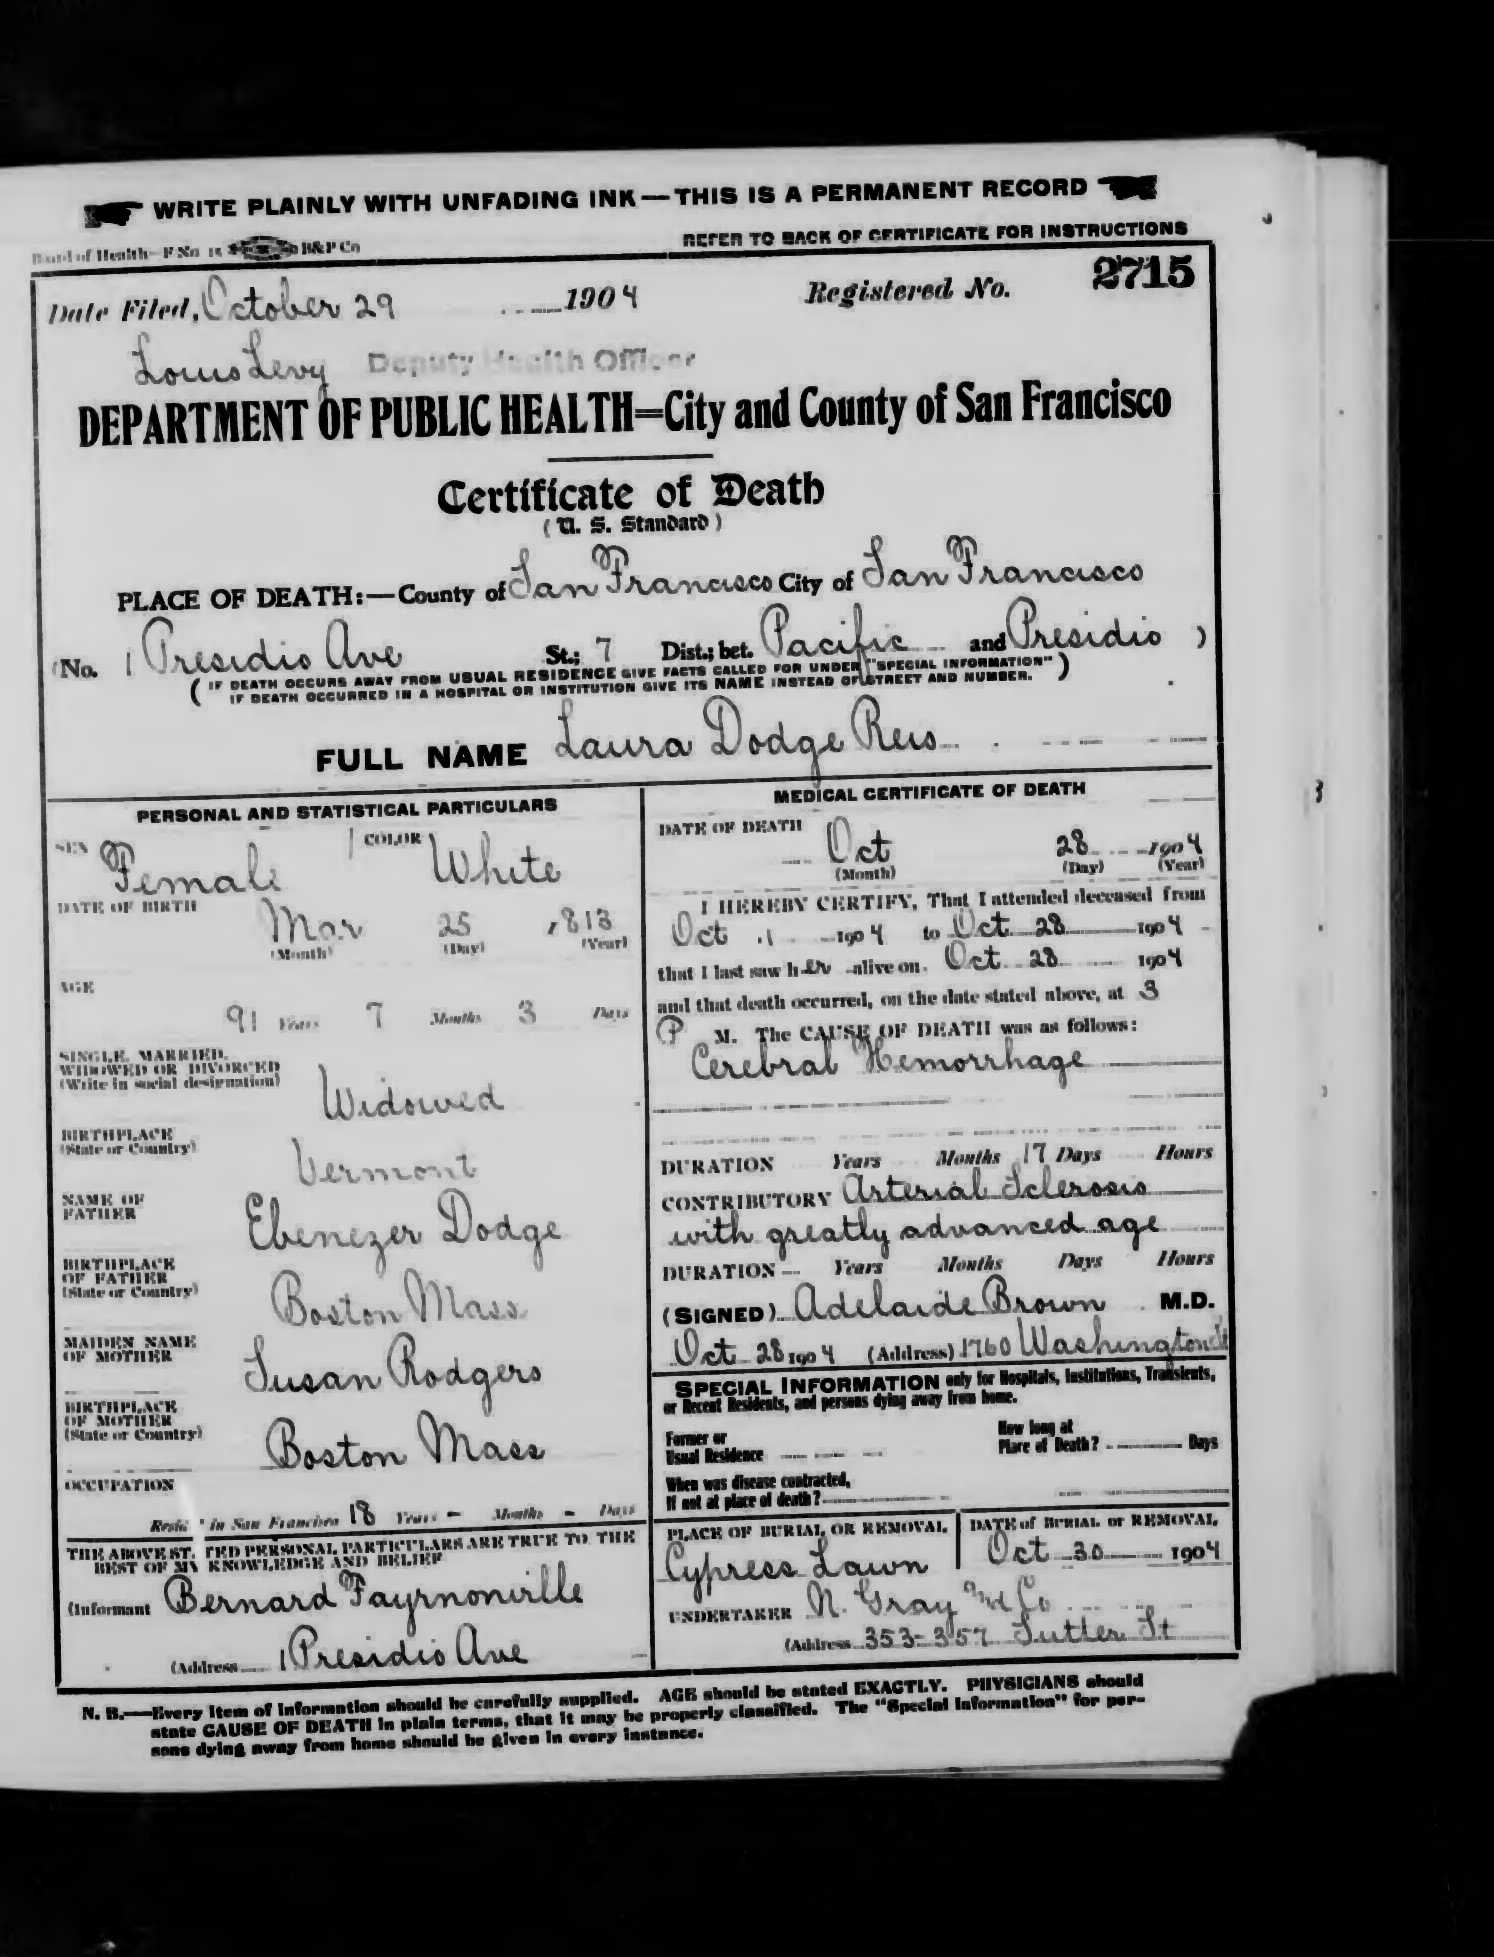 WRITE PLAINLY WITH UNFADING INK — THIS IS A PERMANENT RECORD
Board of Health—F No 15 B&P Co
REFER TO BACK OF CERTIFICATE FOR INSTRUCTIONS
Date Filed, October 29 1904 Registered No. 2715
Louis Levy Deputy Health Officer
DEPARTMENT OF PUBLIC HEALTH=City and County of San Francisco
Certificate of Death
( U. S. Standard )
PLACE OF DEATH:—County of San Francisco City of San Francisco
(No. 1 Presidio Ave St.; 7 Dist.; bet. Pacific and Presidio )
( IF DEATH OCCURS AWAY FROM USUAL RESIDENCE GIVE FACTS CALLED FOR UNDER "SPECIAL INFORMATION" )
IF DEATH OCCURRED IN A HOSPITAL OR INSTITUTION GIVE ITS NAME INSTEAD OF STREET AND NUMBER.
FULL NAME Laura Dodge Reis
PERSONAL AND STATISTICAL PARTICULARS
SEX Female COLOR White
DATE OF BIRTH
Mar 25 1813
(Month) (Day) (Year)
AGE
91 Years 7 Months 3 Days
SINGLE, MARRIED,
WIDOWED OR DIVORCED
(Write in social designation)
Widowed
BIRTHPLACE
(State or Country)
Vermont
NAME OF
FATHER
Ebenezer Dodge
BIRTHPLACE
OF FATHER
(State or Country)
Boston Mass
MAIDEN NAME
OF MOTHER
Susan Rodgers
BIRTHPLACE
OF MOTHER
(State or Country)
Boston Mass
OCCUPATION
Resid in San Francisco 18 Years – Months – Days
THE ABOVE ST TED PERSONAL PARTICULARS ARE TRUE TO THE
BEST OF MY KNOWLEDGE AND BELIEF
(Informant Bernard Faymonville
(Address 1 Presidio Ave
MEDICAL CERTIFICATE OF DEATH
DATE OF DEATH
Oct 28 1904
(Month) (Day) (Year)
I HEREBY CERTIFY, That I attended deceased from
Oct 1 1904 to Oct 28 1904
that I last saw her alive on Oct 28 1904
and that death occurred, on the date stated above, at 3
P M. The CAUSE OF DEATH was as follows:
Cerebral Hemorrhage
DURATION Years Months 17 Days Hours
CONTRIBUTORY Arterial Sclerosis
with greatly advanced age
DURATION Years Months Days Hours
(SIGNED) Adelaide Brown M.D.
Oct 28 1904 (Address) 1760 Washington St
SPECIAL INFORMATION only for Hospitals, Institutions, Transients,
or Recent Residents, and persons dying away from home.
Former or
Usual Residence
How long at
Place of Death? Days
When was disease contracted,
If not at place of death?
PLACE OF BURIAL OR REMOVAL
Cypress Lawn
DATE of BURIAL or REMOVAL
Oct 30 1904
UNDERTAKER N. Gray and Co
(Address 353-357 Sutter St
N. B.—Every item of information should be carefully supplied. AGE should be stated EXACTLY. PHYSICIANS should
state CAUSE OF DEATH in plain terms, that it may be properly classified. The "Special Information" for per-
sons dying away from home should be given in every instance.